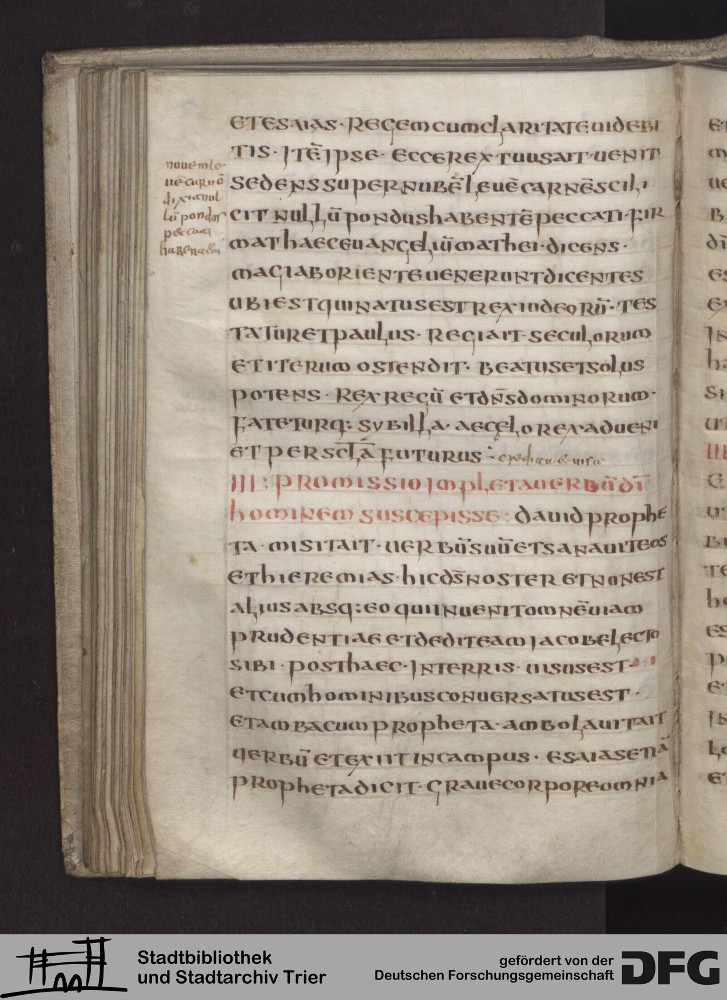 nuuemle
uē carnē
dixit nul
lū pondus
peccati
habentem
ETESAIAS· REGEM CUM CLARITATE UIDEBI
TIS· ITĒ IPSE· ECCE REX TUUS AIT UENIT
SEDENS SUPER NUBĒ LEUĒ CARNĒ SCILI
CIT NULLŪ PONDUS HABENTĒ PECCATI· FIR
MAT HAEC EUANGELIŪ MATHEI· DICENS·
MAGI AB ORIENTE UENERUNT DICENTES
UBI EST QUI NATUS EST REX IUDEORŪ· TES
TATUR ET PAULUS· REGI AIT· SECULORUM
ET ITERUM OSTENDIT· BEATUS ET SOLUS
POTENS· REX REGŪ ET DN̄S DOMINORUM·
FATETURQ: SYBILLA· AE CELO REX ADUENI
ET PER SCLĀ FUTURUS
III: PROMISSIO IMPLETA UERBŪ DĪ
HOMINEM SUSCEPISSE: DAUID PROPHE
TA· MISIT AIT· UERBŪ SUŪ ET SANAUIT EOS
ET HIEREMIAS· HIC DS̄ NOSTER ET NON EST
ALIUS ABSQ: EO QUI INUENIT OMNĒ UIAM
PRUDENTIAE ET DEDIT EAM IACOB ELECTO
SIBI· POST HAEC· IN TERRIS· UISUS EST·
ET CUM HOMINIBUS CONUERSATUS EST·
ET AMBACUM PROPHETA· AMBOLAUIT AIT
UERBŪ ET EXIIT IN CAMPUS· ESAIAS ETIĀ
PROPHETA DICIT· GRAUE CORPORE OMNIA
Stadtbibliothek
und Stadtarchiv Trier
gefördert von der
Deutschen Forschungsgemeinschaft
DFG